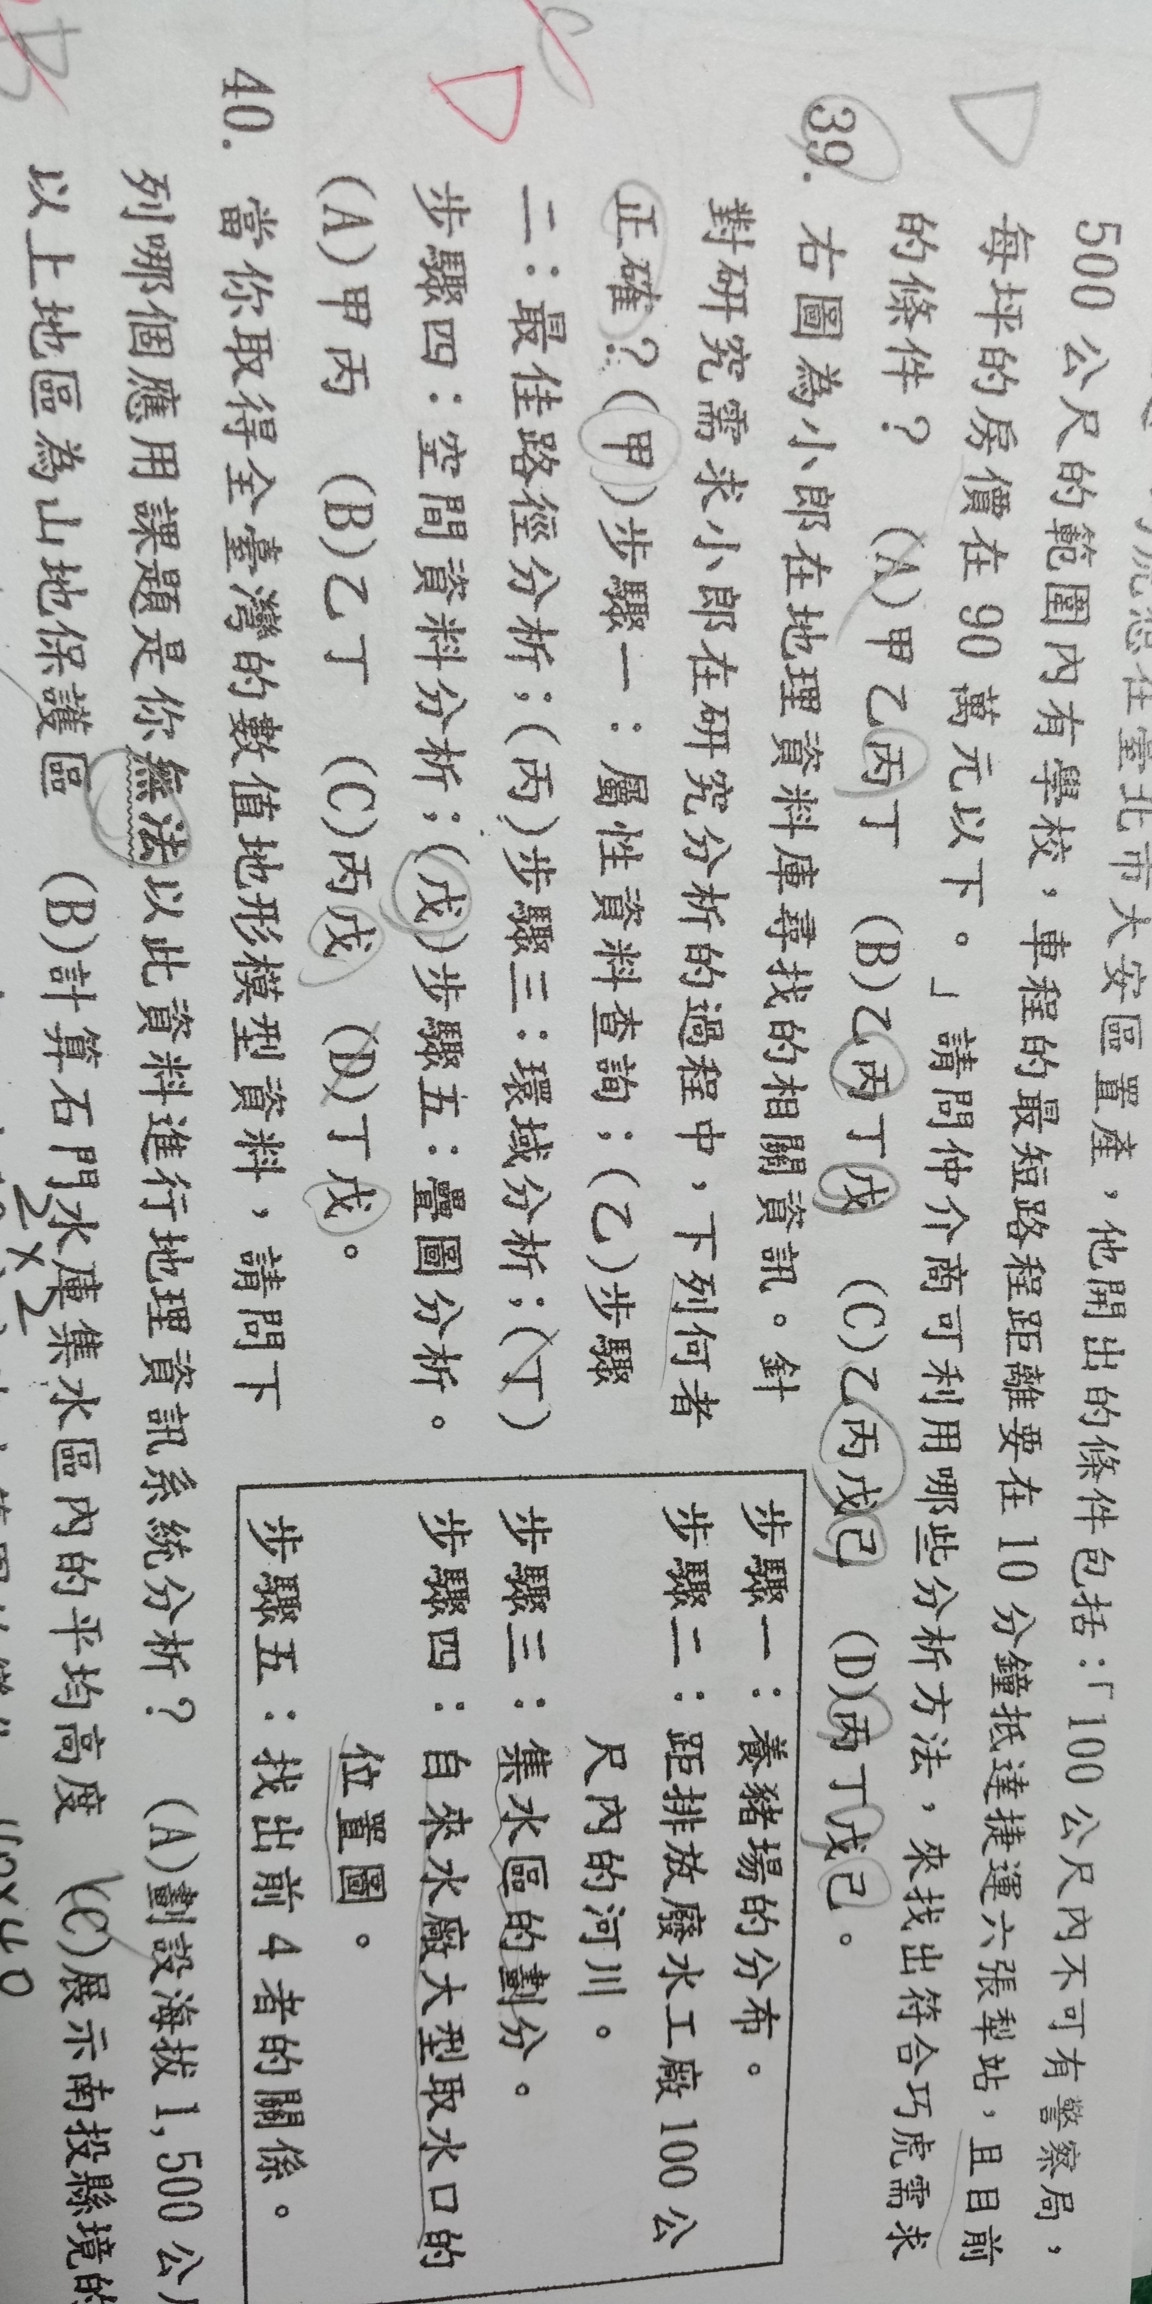 500 公尺的範圍內有學校，車程的最短路程距離要在 10 分鐘抵達捷運六張犁站，且目前
每坪的房價在 90 萬元以下。」請問仲介商可利用哪些分析方法，來找出符合巧虎需求
的條件？ (A)甲乙丙丁 (B)乙丙丁戊 (C)乙丙戊己 (D)丙丁戊己。
39. 右圖為小郎在地理資料庫尋找的相關資訊。針
對研究需求小郎在研究分析的過程中，下列何者
正確？(甲)步驟一：屬性資料查詢；(乙)步驟
二：最佳路徑分析；(丙)步驟三：環域分析；(丁)
步驟四：空間資料分析；(戊)步驟五：疊圖分析。
(A)甲丙 (B)乙丁 (C)丙戊 (D)丁戊。
步驟一：養豬場的分布。
步驟二：距排放廢水工廠 100 公
尺內的河川。
步驟三：集水區的劃分。
步驟四：自來水廠大型取水口的
位置圖。
步驟五：找出前 4 者的關係。
40. 當你取得全臺灣的數值地形模型資料，請問下
列哪個應用課題是你無法以此資料進行地理資訊系統分析？ (A)劃設海拔 1,500 公
以上地區為山地保護區 (B)計算石門水庫集水區內的平均高度 (C)展示南投縣境的
D
D